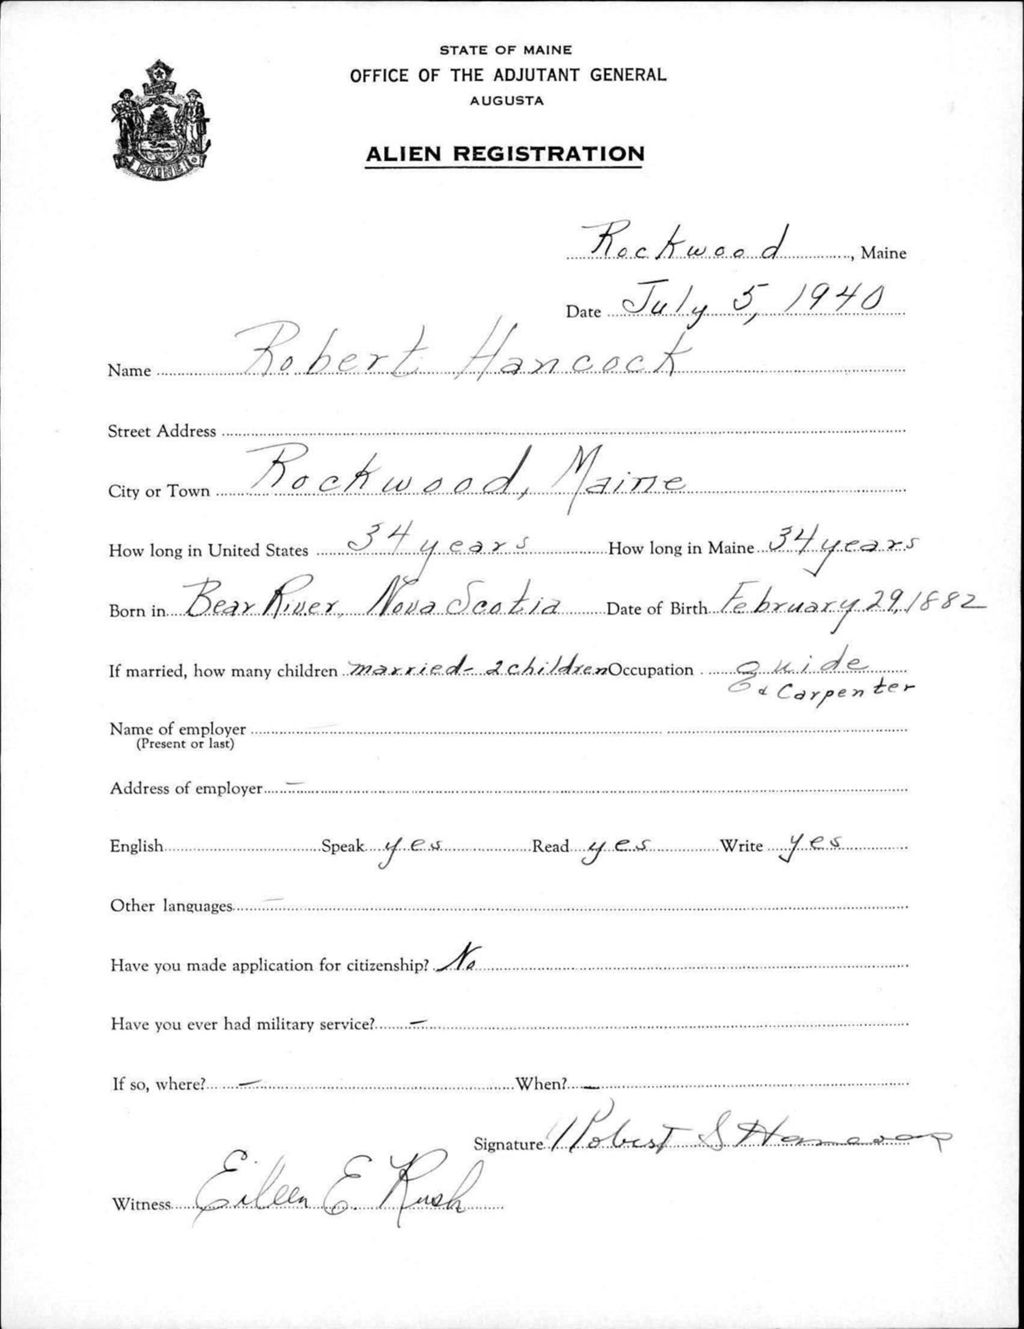 STATE OF MAINE
OFFICE OF THE ADJUTANT GENERAL
AUGUSTA
ALIEN REGISTRATION
MAINE
Rockwood, Maine
Date July 5, 1940
Name Robert Hancock
Street Address
City or Town Rockwood, Maine
How long in United States 34 years How long in Maine 34 years
Born in Bear River, Nova Scotia Date of Birth February 29, 1882
If married, how many children married - 2 children Occupation guide
& Carpenter
Name of employer
(Present or last)
Address of employer —
English Speak yes Read yes Write yes
Other languages —
Have you made application for citizenship? No
Have you ever had military service? —
If so, where? — When? —
Signature Robert S Hancock
Witness Eileen E. Rush